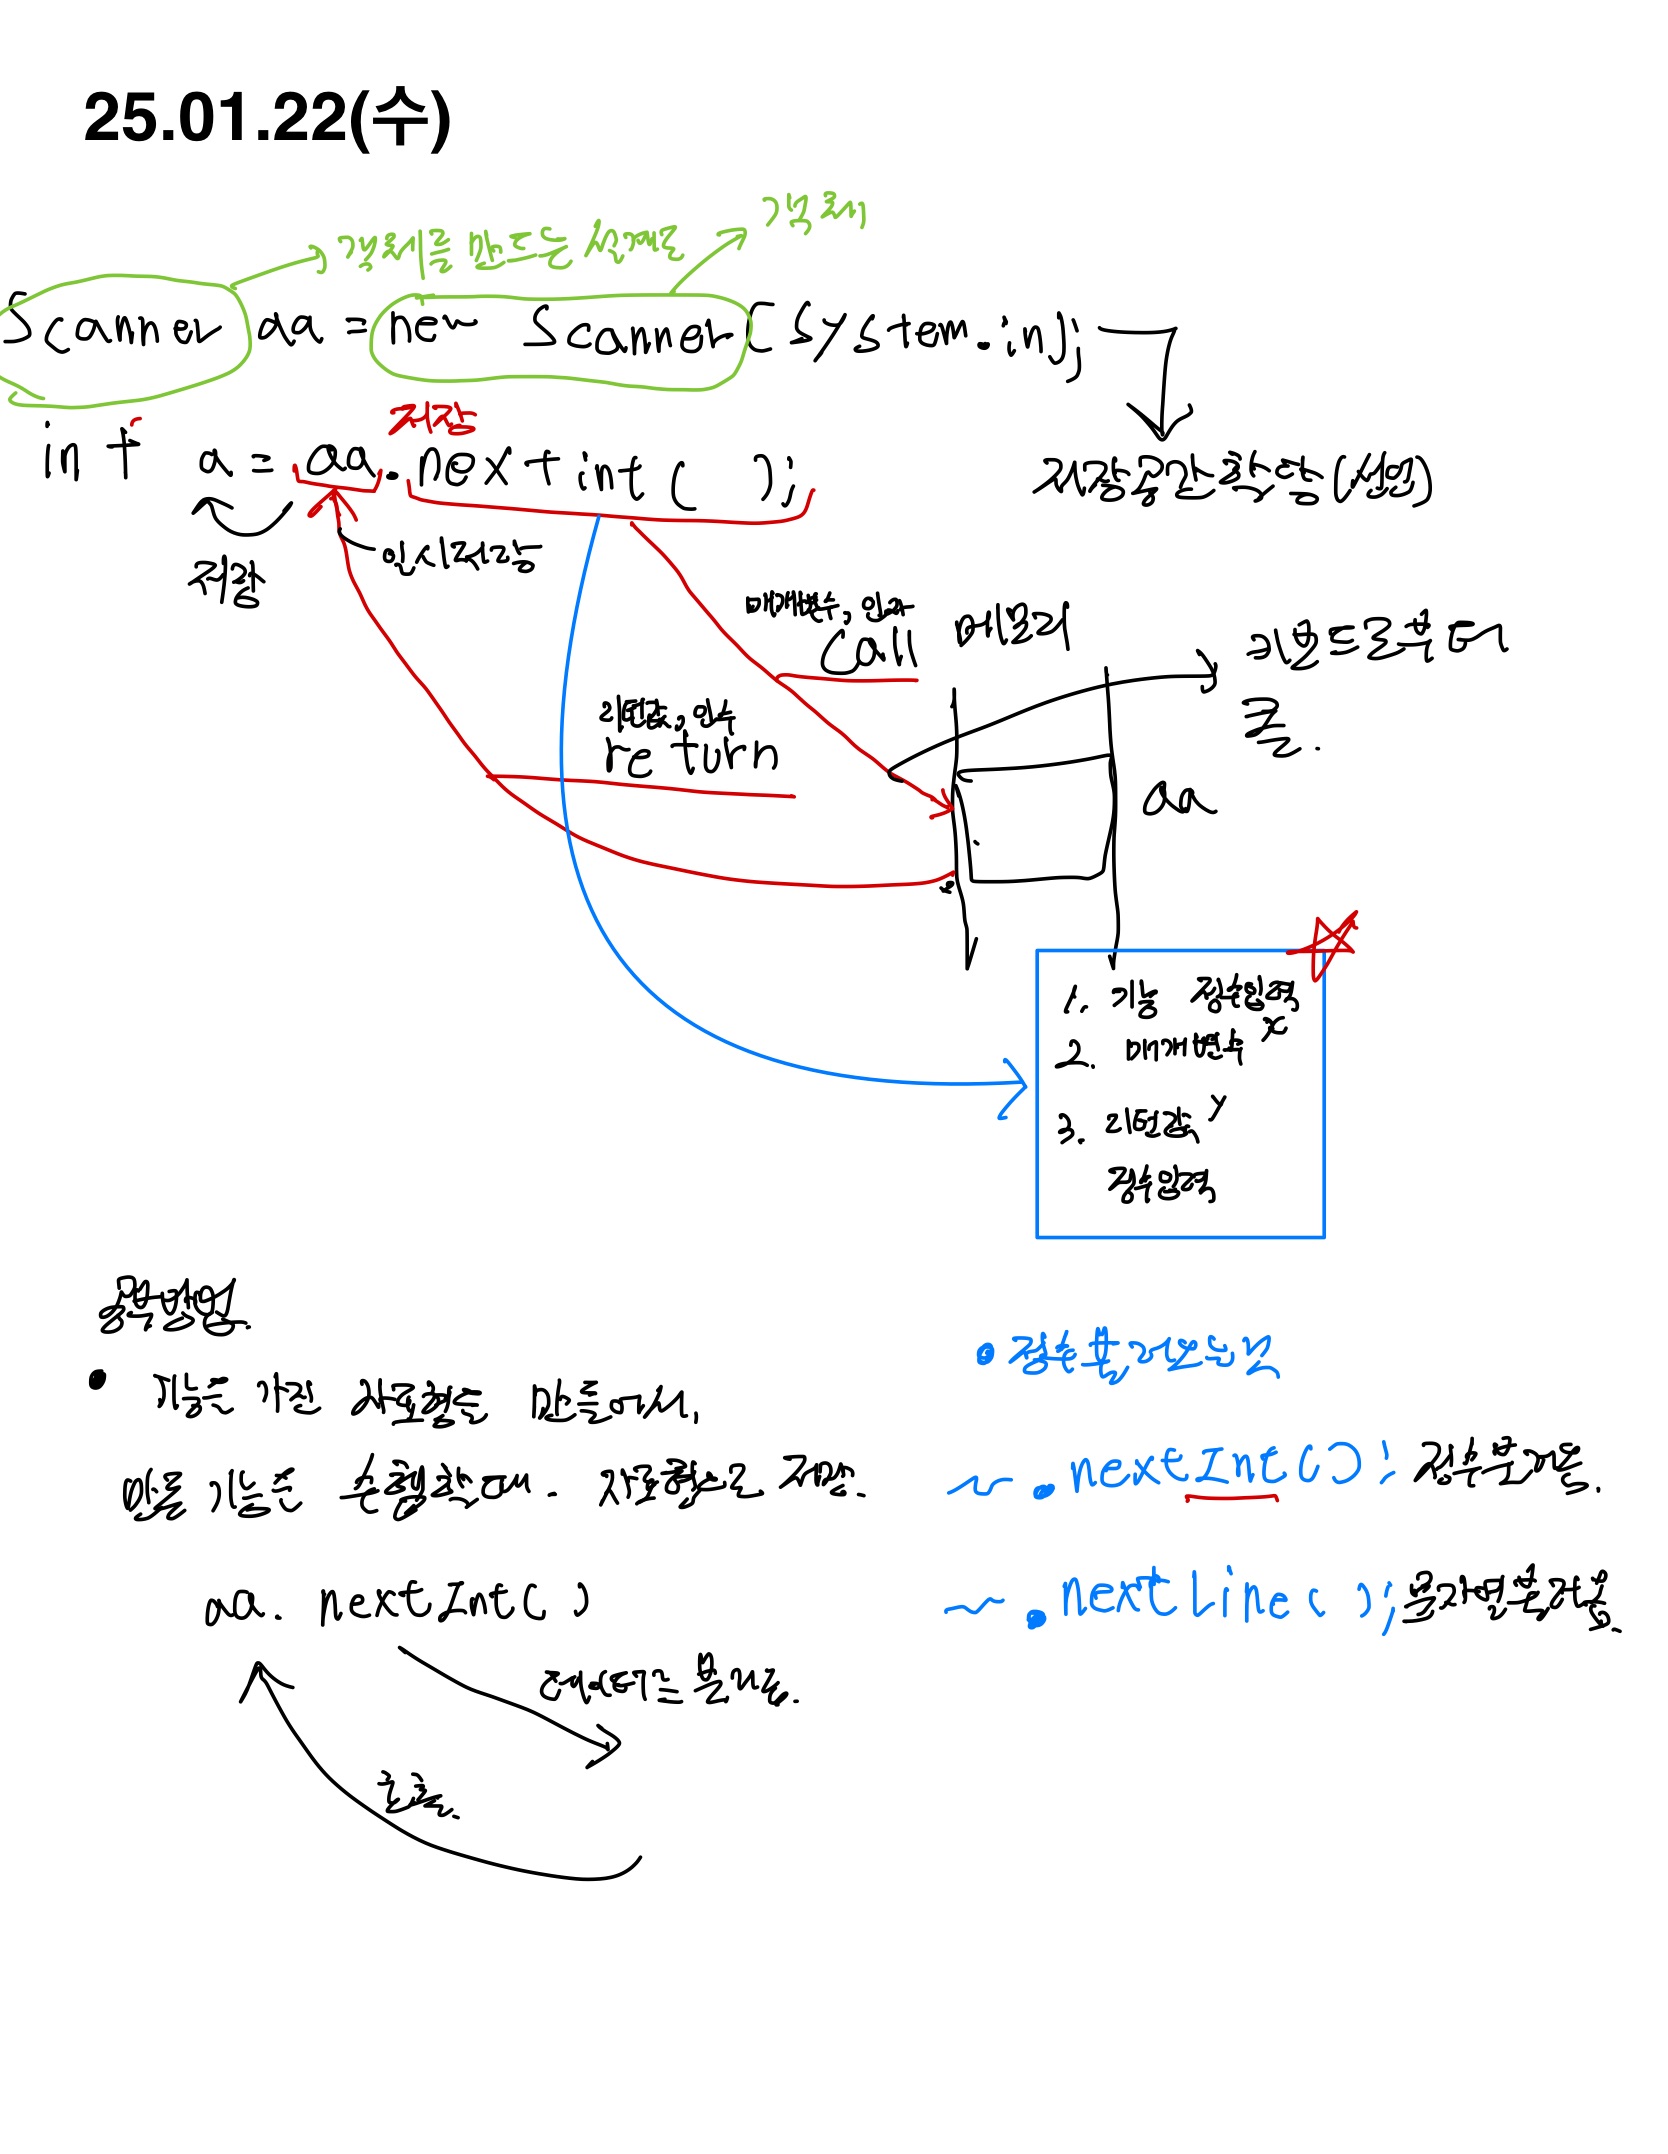 25.01.22(수)
객체를 만드는 설계도
객체
Scanner aa = new Scanner(System.in);
저장
int a = aa.nextint( );
저장공간할당(선언)
저장
임시저장
매개변수, 인자
call
메모리
키보드로부터
콜.
리턴값, 인수
return
aa
1. 기능 정수입력
2. 매개변수 x
3. 리턴값 y
정수입력
공부방법.
• 기능을 가진 자료형을 만들어서,
만든 기능은 수행할때. 자료형으로 저장.
aa. nextInt()
데이터는 불러옴.
호출.
• 정수불러오는법
~.nextInt(); 정수불러옴.
~.nextLine( ); 문자열불러옴.